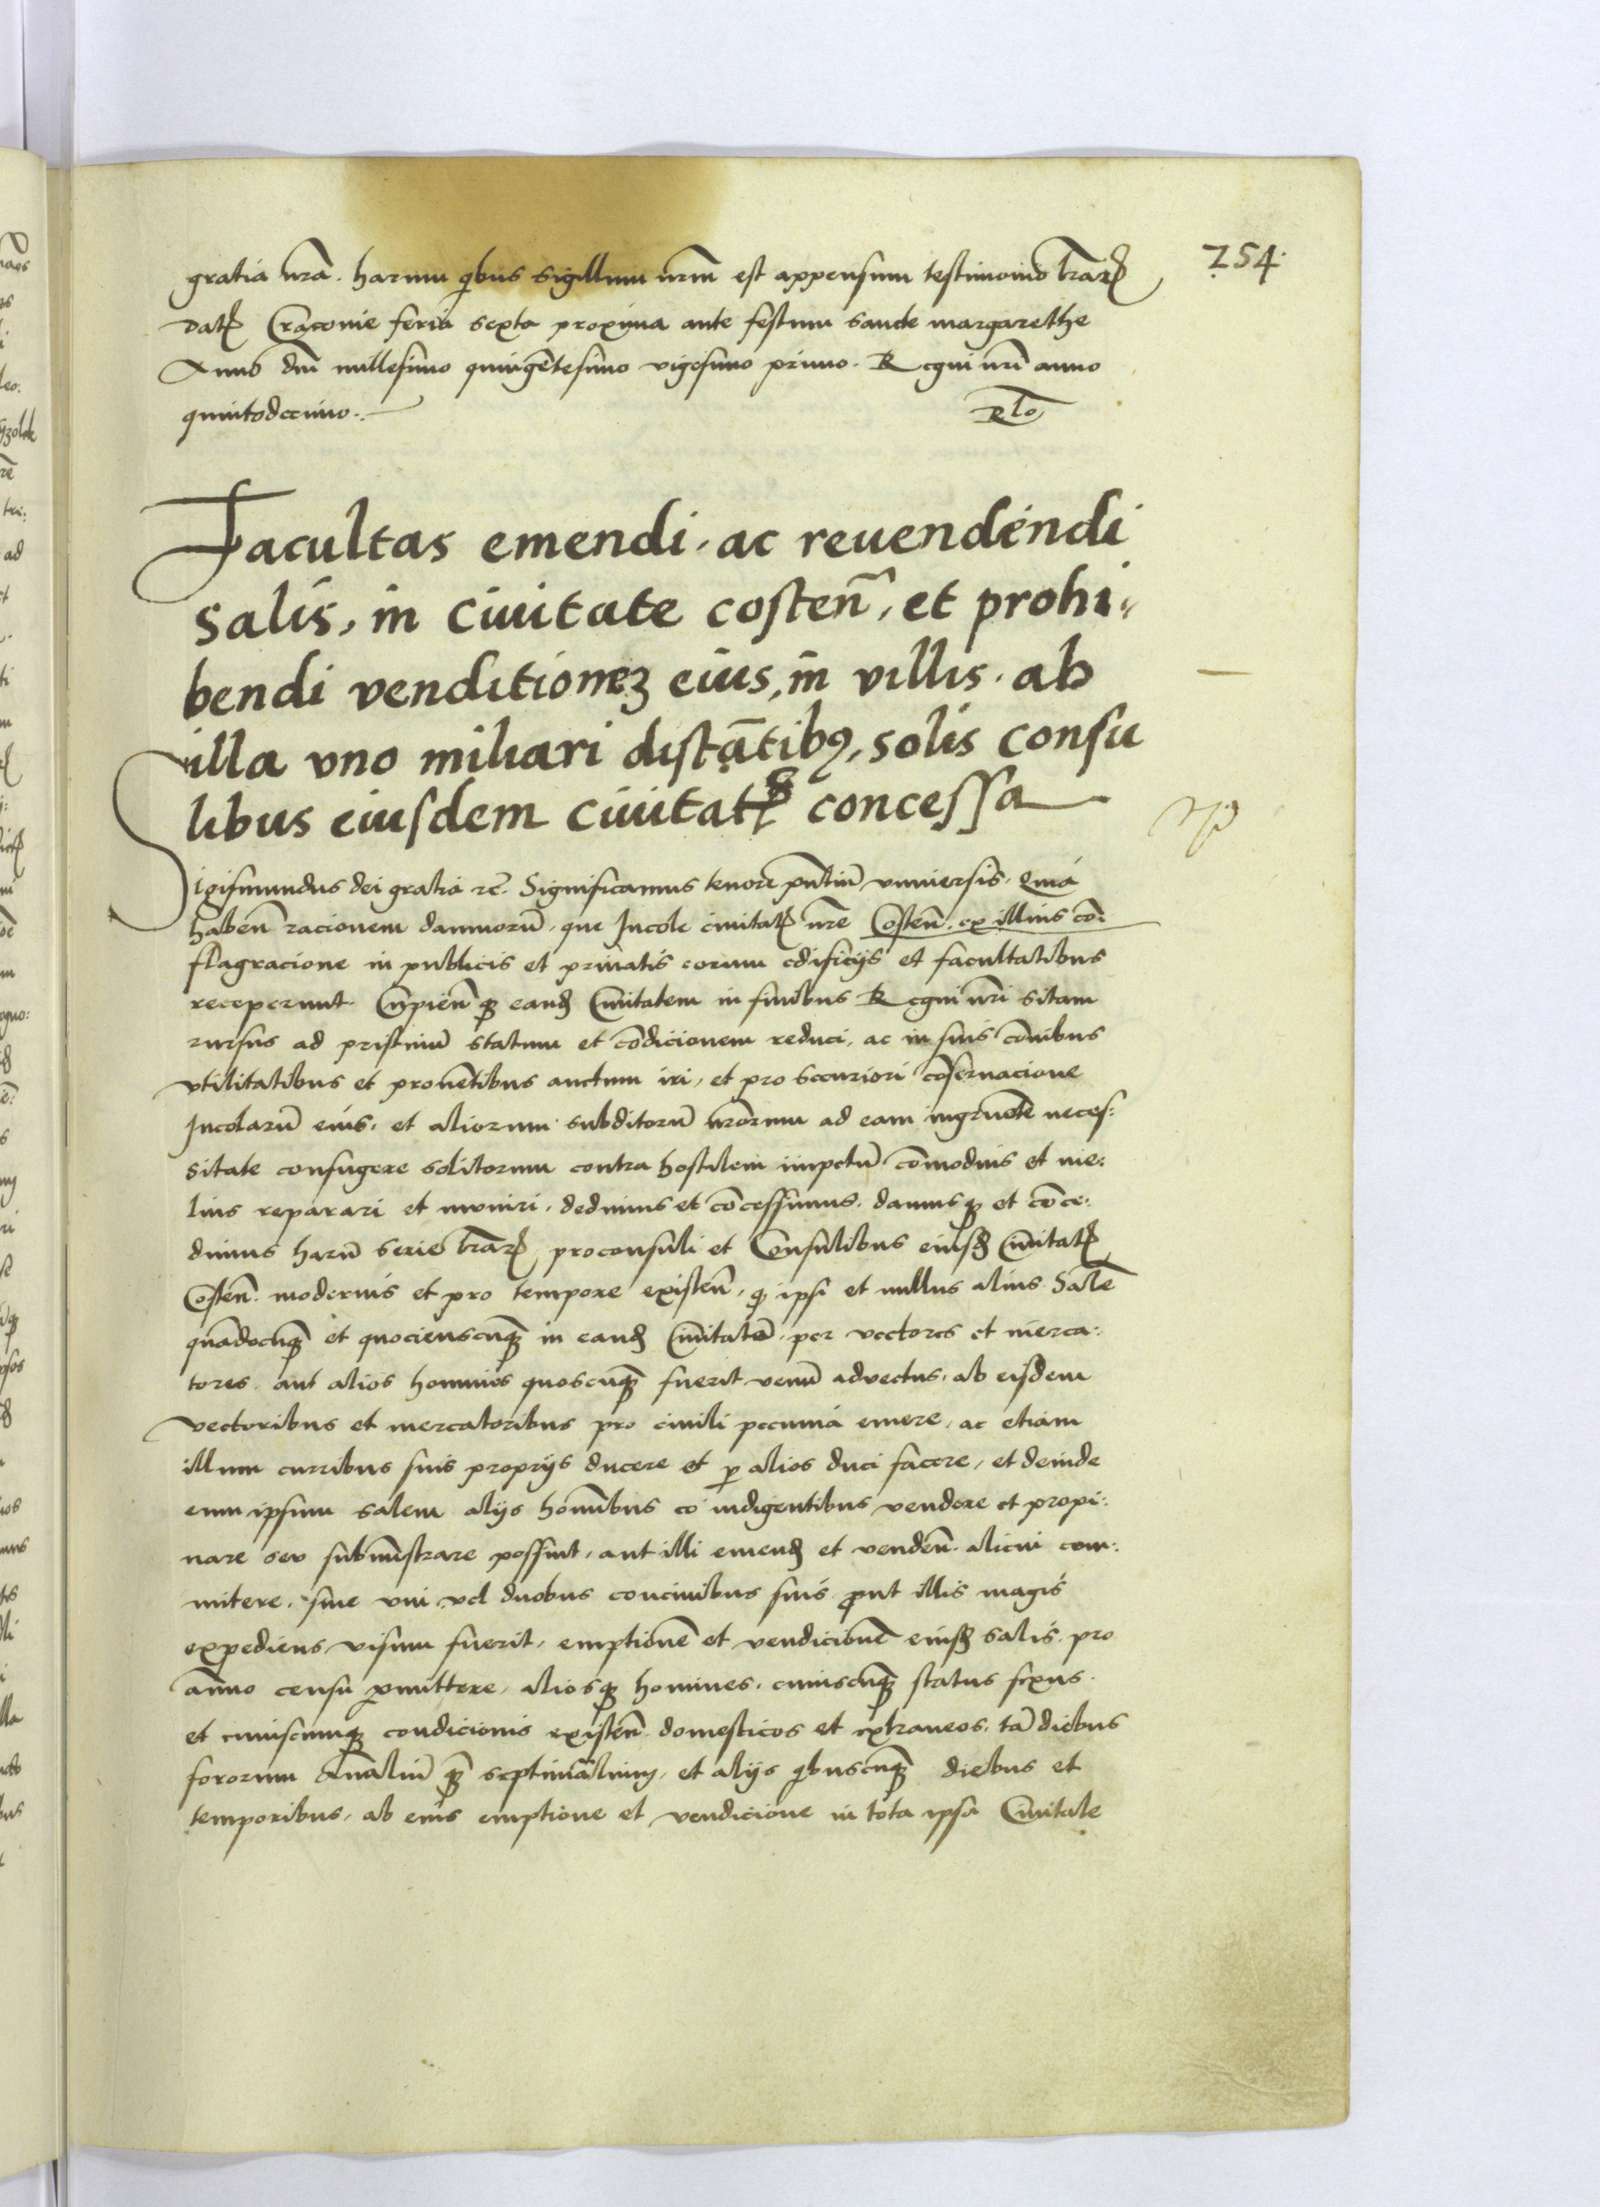 254.
gratia nrã. harum qbus sigillum nrm̃ est appensum testimonio lrãrꝫ
datꝫ Cracouie feria sexta proxima ante festum sancte margarethe
Anno dnĩ millesimo quingẽtesimo vigesimo primo. Regni nrĩ anno
quintodecimo.
Rlõ
Facultas emendi. ac reuendendi
salis, in Ciuitate costeñ, et prohi-
bendi venditionẽꝫ eius, in villis. ab
illa vno miliari distãtibꝰ, solis consu
libus eiusdem Ciuitatꝭ concessa
Sigismundus dei gratia rc̃. Significamus tenore pñtiũ vniuersis. Quia
habeñ racionem damnorũ, que Incole ciuitatꝭ nrẽ Costeñ. ex illius cõ-
flagracione in publicis et priuatis eorum edificijs et facultatibus
receperunt. Cupieñ qꝫ eandꝫ Ciuitatem in finibus Regni nrĩ sitam
rursus ad pristinũ statum et cõdicionem reduci, ac in suis cõmibus
vtilitatibus et prouẽtibus auctum iri, et pro securiori cõseruacione
Incolarũ eius, et aliorum subditorũ nrõrum ad eam ingruẽte neces:
sitate confugere solitorum contra hostilem impetũ cõmodius et me:
lius reparari et muniri, dedimus et cõcessimus, damusqꝫ et cõce:
dimus harũ serie lrãrꝫ proconsuli et Consulibus eiusdꝫ Ciuitatꝭ
Costeñ. modernis et pro tempore existeñ, qꝫ ipsi et nullus alius Salẽ
quãdocũqꝫ et quocienscũqꝫ in eandꝫ Ciuitatẽ, per vectores et merca:
tores. aut alios homines quoscũqꝫ fuerit venũ aduectus, ab eisdem
vectoribus et mercatoribus pro ciuili pecunia emere, ac etiam
illum curribus suis proprijs ducere et ꝑ alios duci facere, et deinde
eum ipsum salem alijs hominibus eo indigentibus vendere et propi:
nare seu submĩstrare possint, aut illi emendꝫ et vendeñ. alicui com:
mitere, siue vni vel duobus conciuibus suis ꝓut illis magis
expediens visum fuerit, emptionẽ et vendicionẽ eiusdꝫ salis. pro
ãnuo censu ꝑmittere, aliosqꝫ homines, cuiuscũqꝫ status sexus.
et cuiuscumqꝫ condicionis existeñ. domesticos et extraneos. tã diebus
fororum Annaliũ qꝫ̃ septimãlium, et alijs qbuscũqꝫ diebus et
temporibus, ab eius emptione et vendicione in tota ipsa Ciuitate